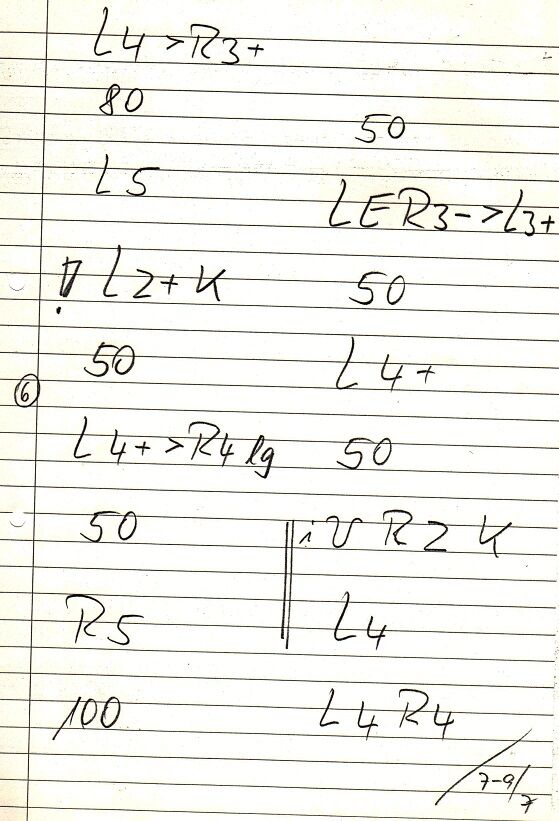 L4 >R3+
80
L5
! L2+ K
50
L4+ >R4 lg
50
R5
100
50
LER3->L3+
50
L4+
50
iV R2 K
L4
L4 R4
6
7-9/7